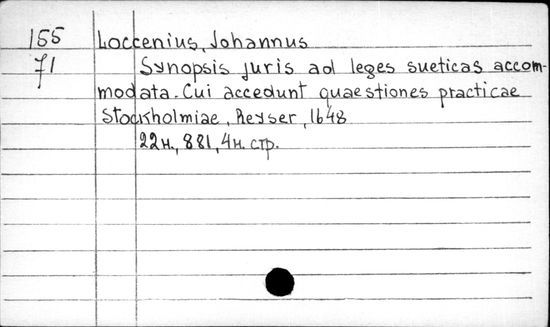 155 Loccenius, Johannus
71 Synopsis juris ad leges sueticas accom-
modata. Cui accedunt quaestiones practicae
Stockholmiae, Reyser, 1648
22н., 881, 4н. стр.